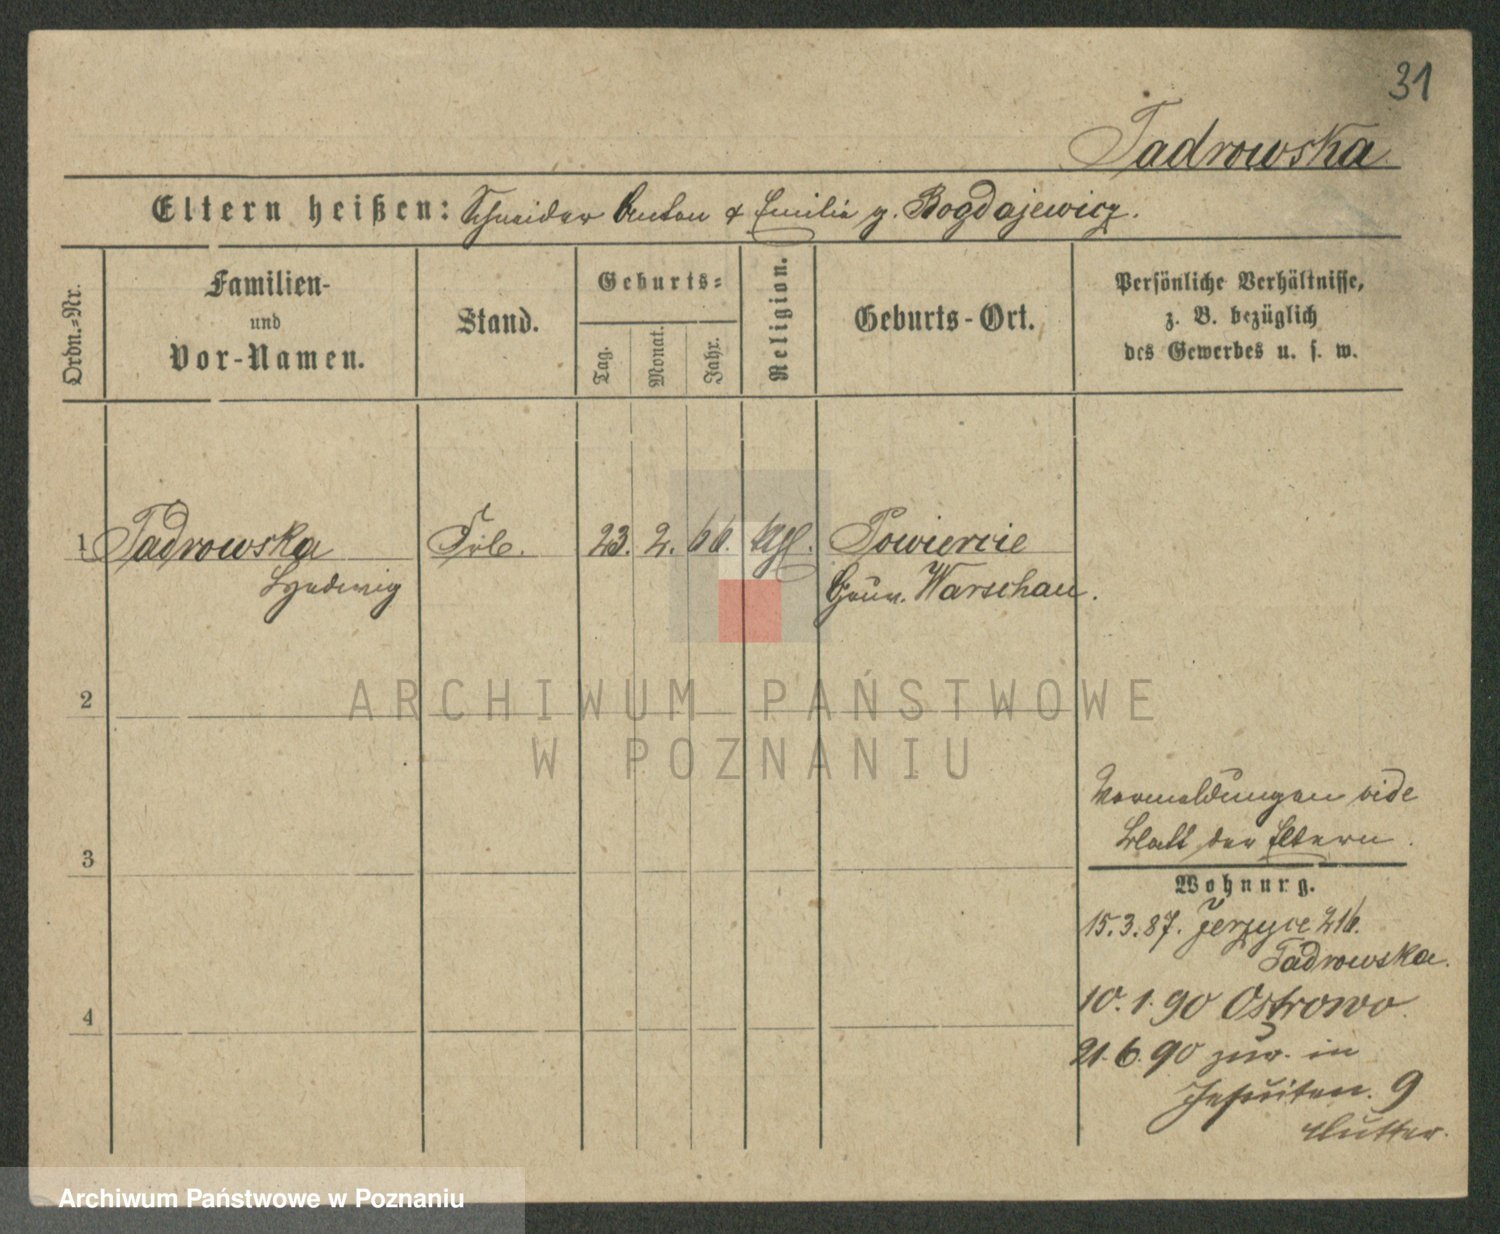 31
Tadrowska
Eltern heißen: Schneider Anton & Emilie g. Bogdajewicz.
Ordn.=Nr.
Familien-
und
Vor-Namen.
Stand.
Geburts=
Tag.
Monat.
Jahr.
Religion.
Geburts-Ort.
Persönliche Verhältnisse,
z. B. bezüglich
des Gewerbes u. s. w.
1 Tadrowska Frl. 23. 2. 66. kath. Powiercie
Hedwig Gouv. Warschau.
2
ARCHIWUM PAŃSTWOWE
W POZNANIU
Vormeldungen vide
Blatt der Eltern.
3
Wohnung.
15.3.87. Jerzyce 216.
Tadrowska.
10.1.90 Ostrowo.
4
21.6.90 zur. in
Jesuiten. 9
Mutter.
Archiwum Państwowe w Poznaniu